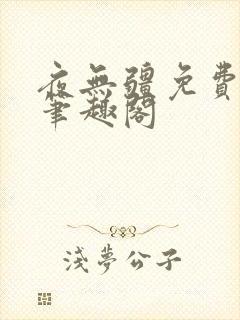 夜無疆免費
筆趣閣
淺夢公子